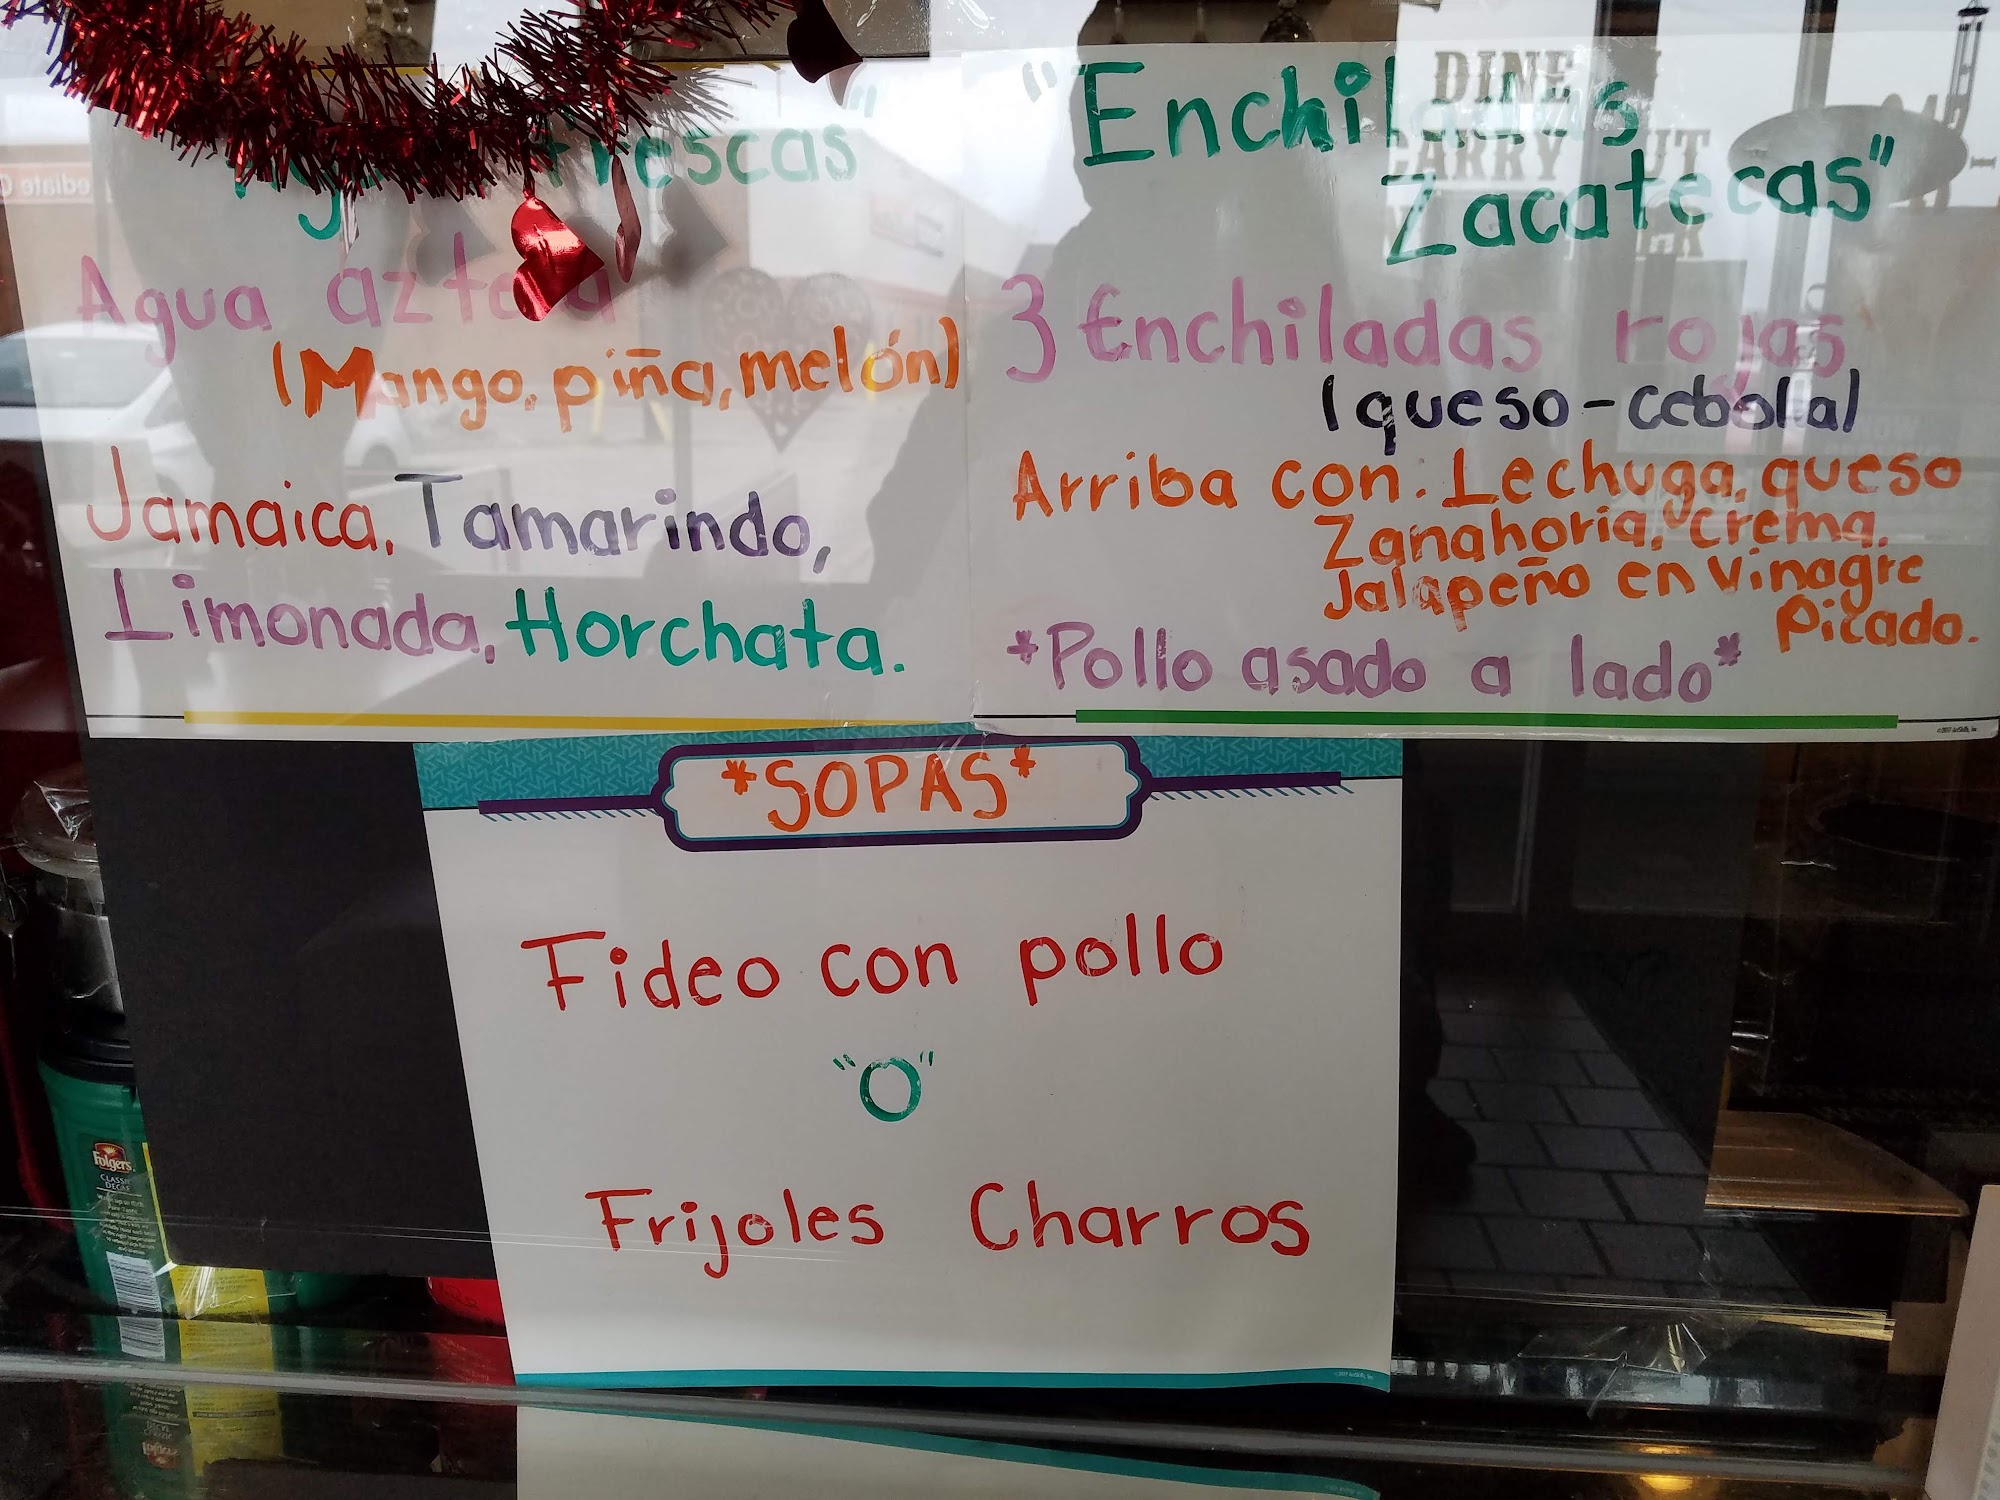 frescas"
Agua azteca
(Mango, piña, melón)
Jamaica, Tamarindo,
Limonada, Horchata.
"Enchiladas
Zacatecas"
3 Enchiladas rojas
(queso-cebolla)
Arriba con. Lechuga, queso
Zanahoria, crema,
Jalapeño en vinagre
picado.
*Pollo asado a lado*
*SOPAS*
Fideo con pollo
"O"
Frijoles Charros
DINE
CARRY
Folgers
CLASSIC
DECAF